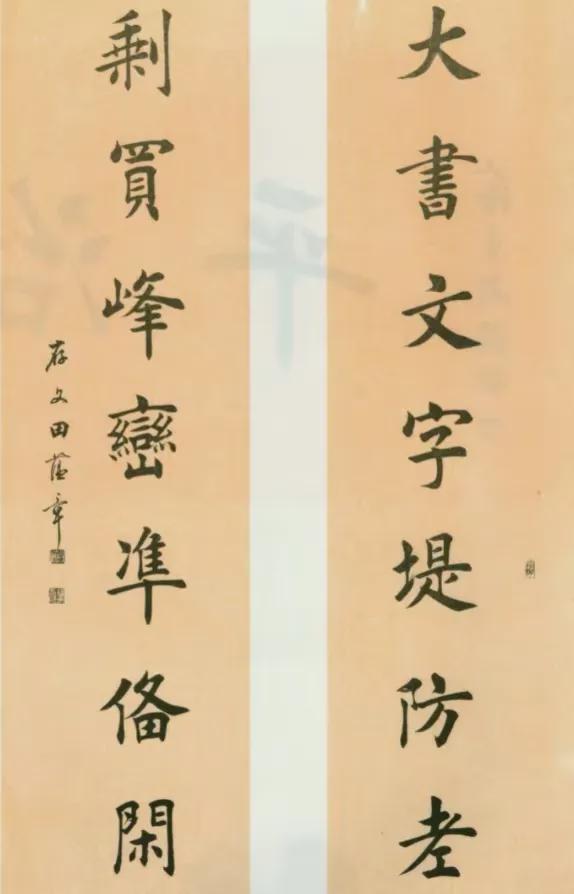 大書文字堤防老
剩買峰巒凖俻閑
存文田蘊章